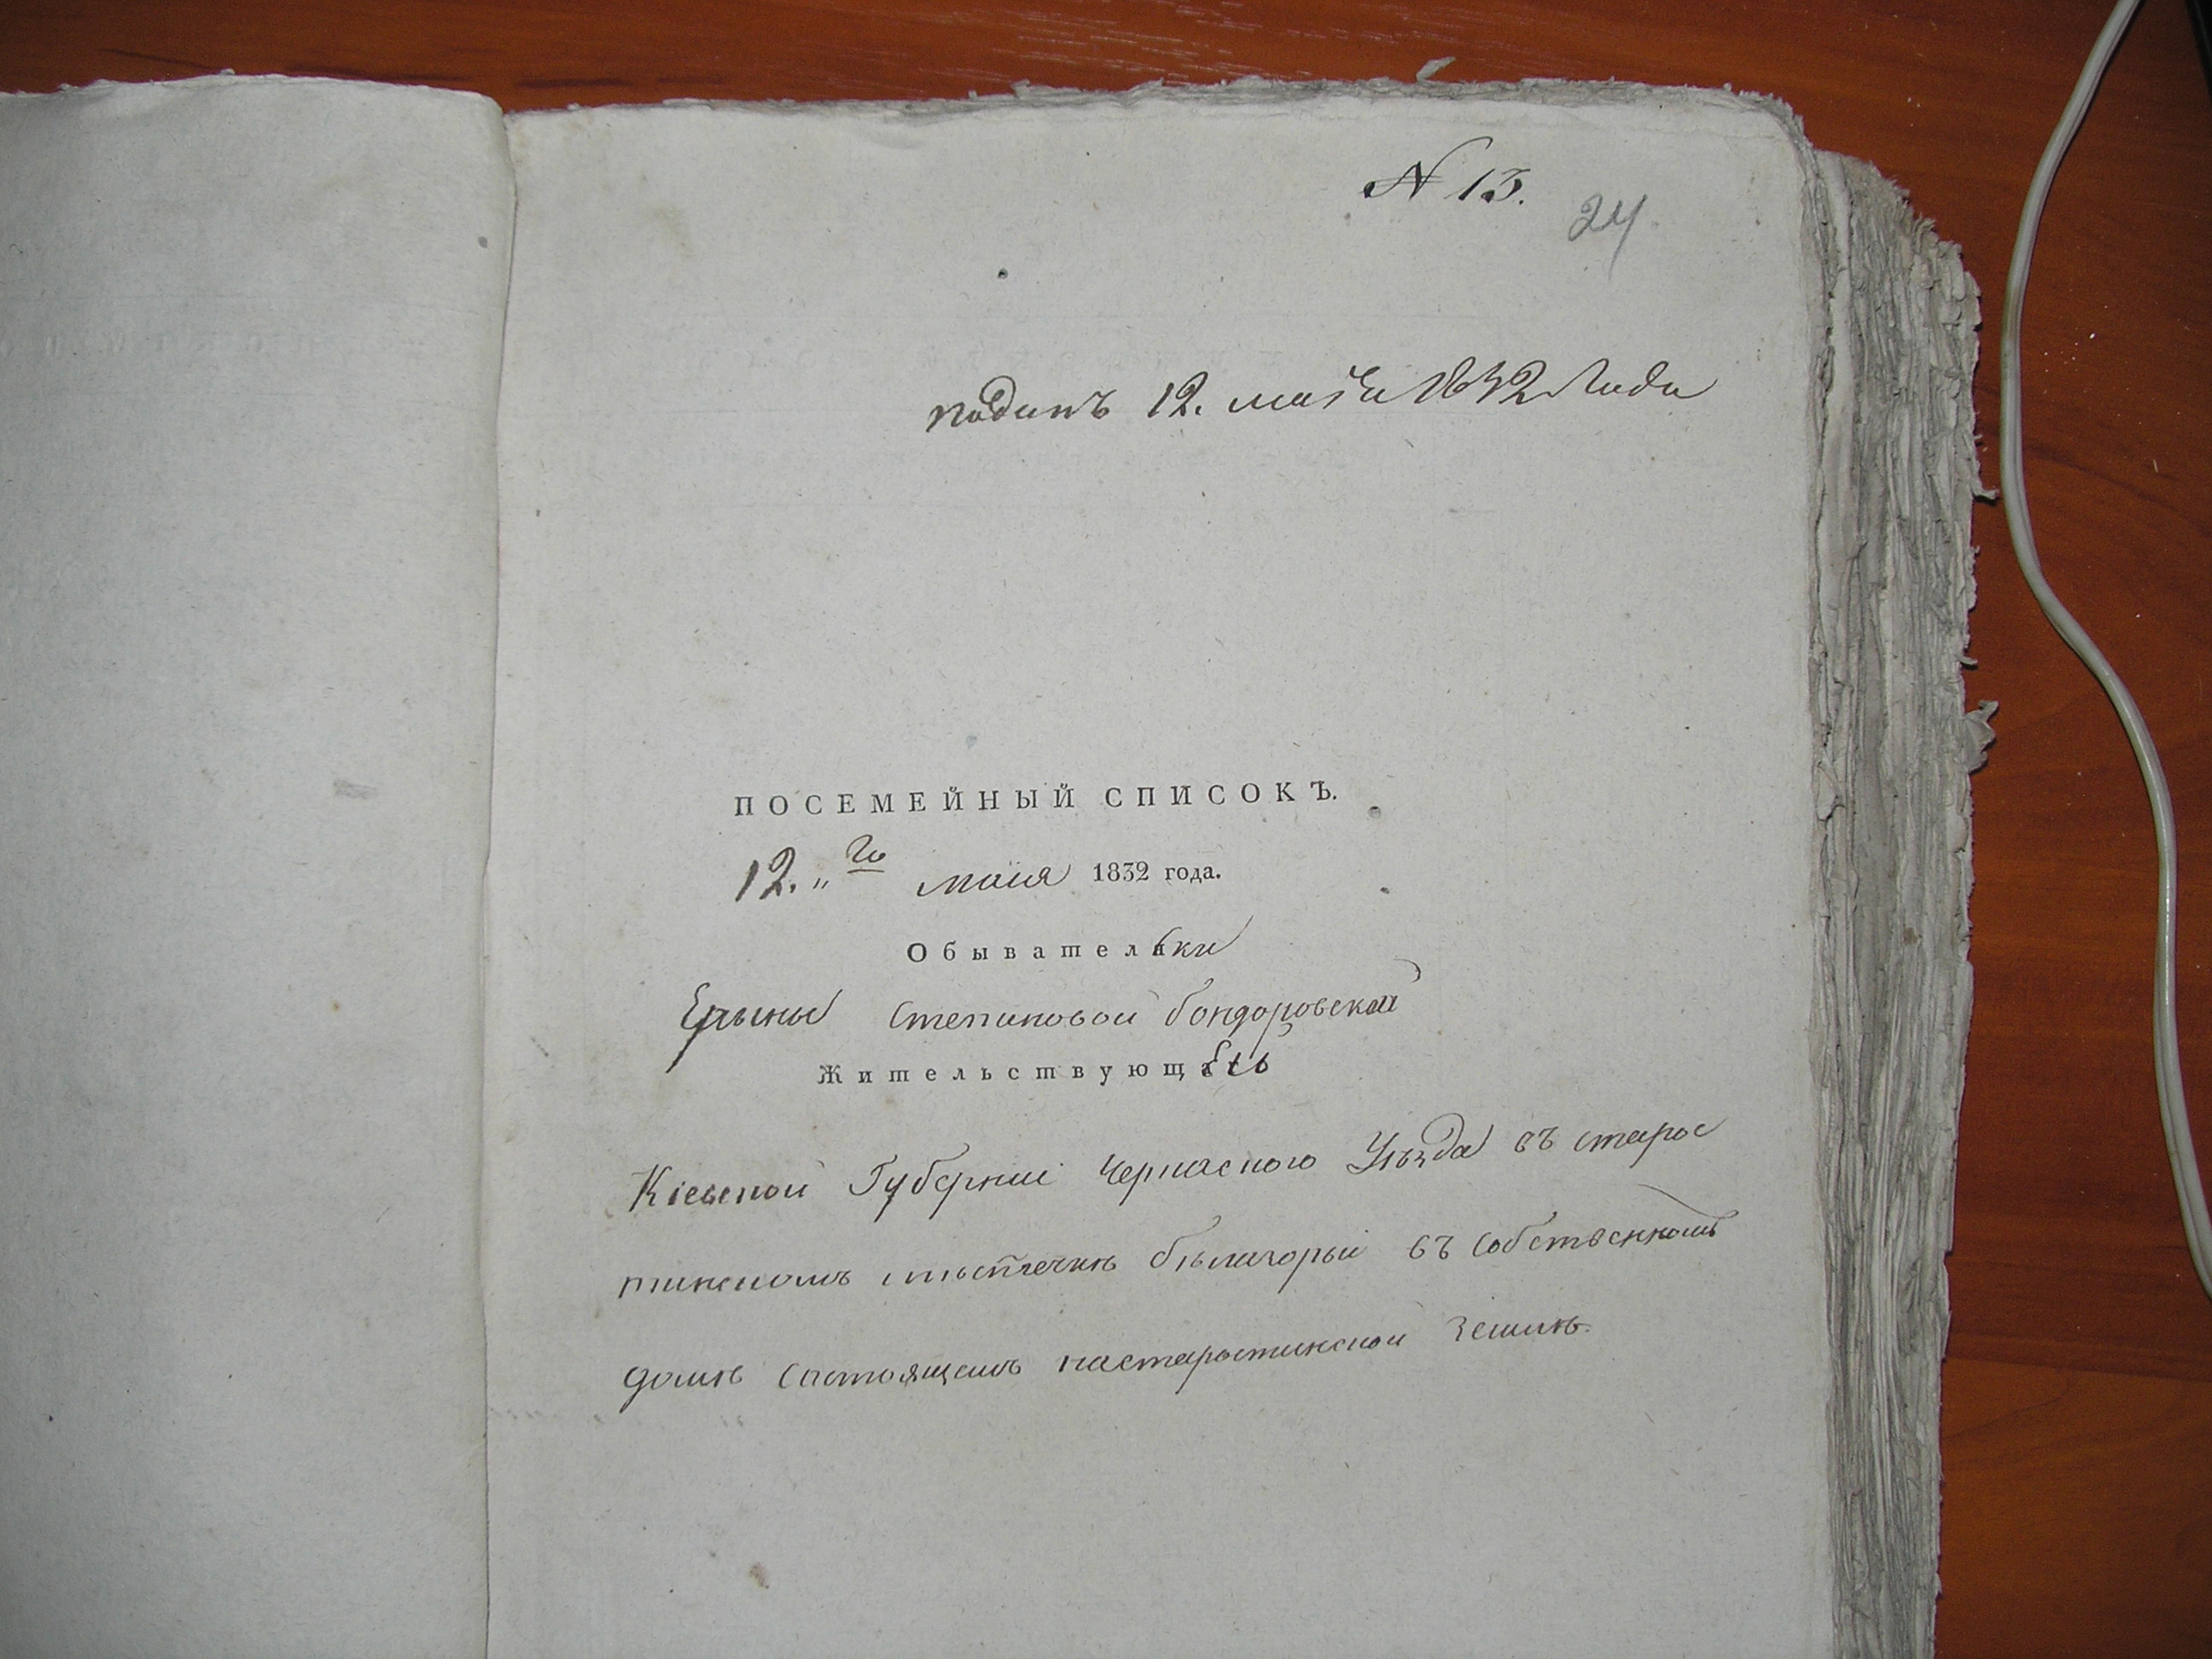 N 13.
24
поданъ 12. маія 1832 года
ПОСЕМЕЙНЫЙ СПИСОКЪ.
12.„го маія 1832 года.
Обывательки
Ерыны Степановой бондоровской
Жительствующей
Кіевской Губерніи Черкаского Уѣзда въ старос
тинскомъ мѣстечкѣ бѣлазорьи въ собственномъ
домѣ состоящемъ настаростинской Землѣ.